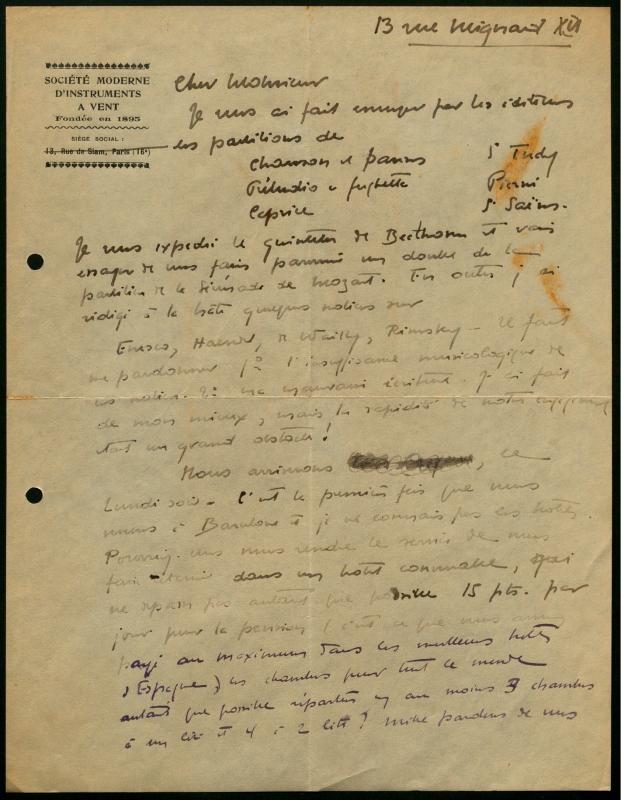 13 rue Mignard XVI
SOCIÉTÉ MODERNE
D'INSTRUMENTS
A VENT
Fondée en 1895
SIÈGE SOCIAL :
13, Rue de Siam, Paris (16e)
Cher Monsieur
Je vous ai fait envoyer par les éditeurs
les partitions de
Chanson et danses d'Indy
Prélude et fughette Pierné
Caprice St Saëns.
Je vous expédie le quintette de Beethoven et vais
essayer de vous faire parvenir un double de la
partition de la sérénade de Mozart. En outre j'ai
rédigé à la hâte quelques notices sur
Enesco, Haendel, de Wailly, Rimsky — Il faut
me pardonner 1° l'insuffisance musicologique de
ces notices 2° ma mauvaise écriture. J'ai fait
de mon mieux, mais la rapidité de notre engagement
était un grand obstacle !
Nous arrivons, le
Lundi soir. C'est la première fois que nous
venons à Barcelone et je ne connais pas les hôtels.
Pourriez-vous nous rendre le service de nous
faire retenir dans un hôtel convenable, qui
ne dépasse pas autant que possible 15 pts. par
jour pour la pension (c'est ce que nous avons
payé au maximum dans les meilleurs hôtels
d'Espagne) les chambres pour tout le monde
autant que possible réparties en au moins 3 chambres
à un lit et 4 à 2 lits ? Mille pardons de vous